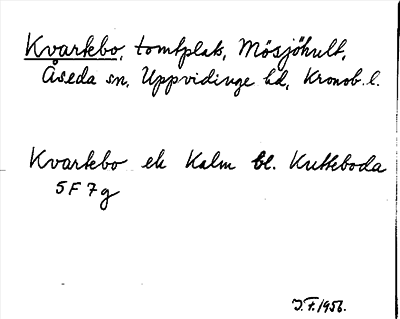 Kvarkebo, tomtplats, Mösjöhult,
Åseda sn, Uppvidinge hd, Kronob. l.
Kvarkebo ek Kalm bl. Kutteboda
5F7g
J.F. 1956.